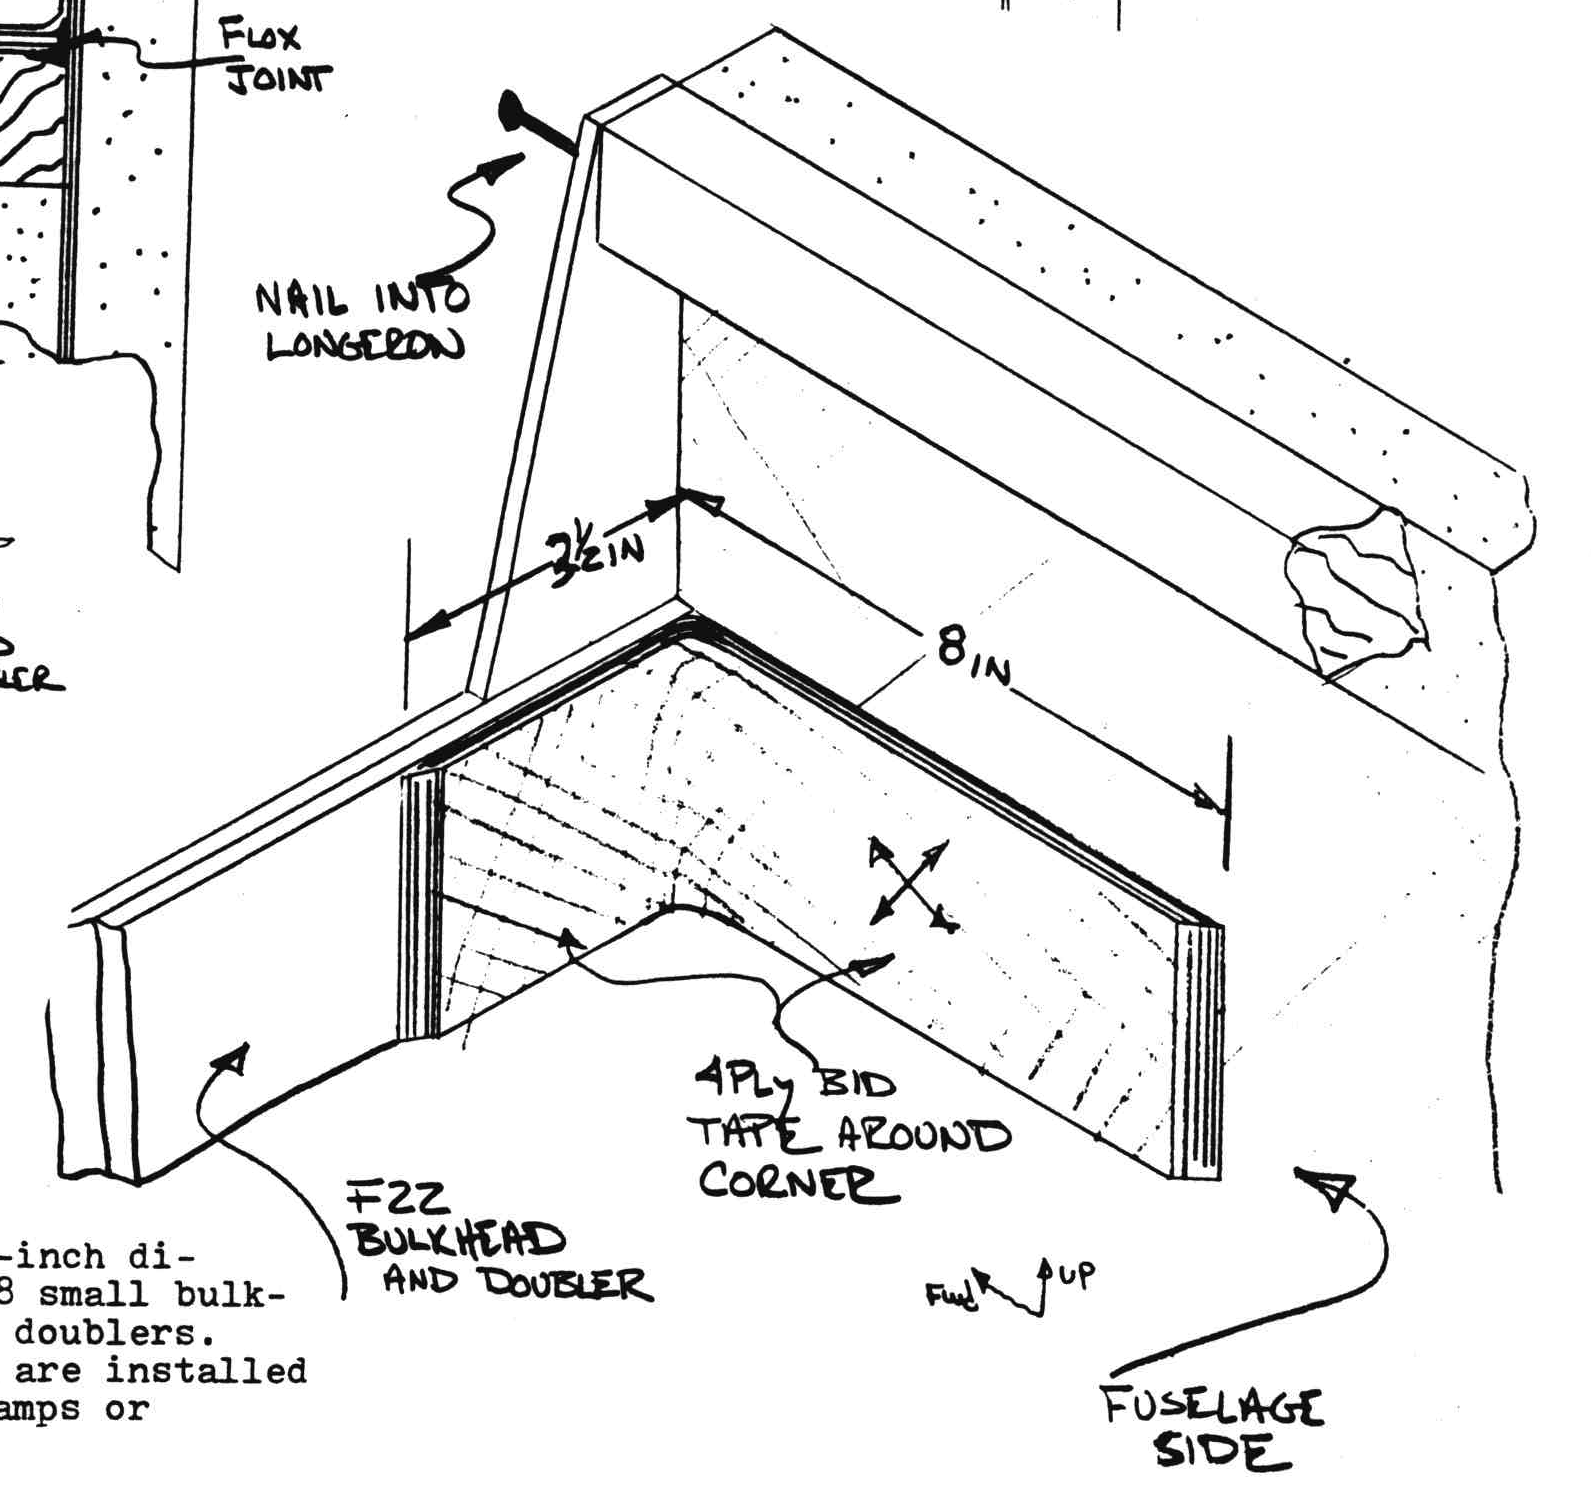 FLOX
JOINT
NAIL INTO
LONGERON
3½ IN
8 IN
4 PLY BID
TAPE AROUND
CORNER
F22
BULKHEAD
AND DOUBLER
FWD
UP
FUSELAGE
SIDE
-inch di-
8 small bulk-
doublers.
are installed
or